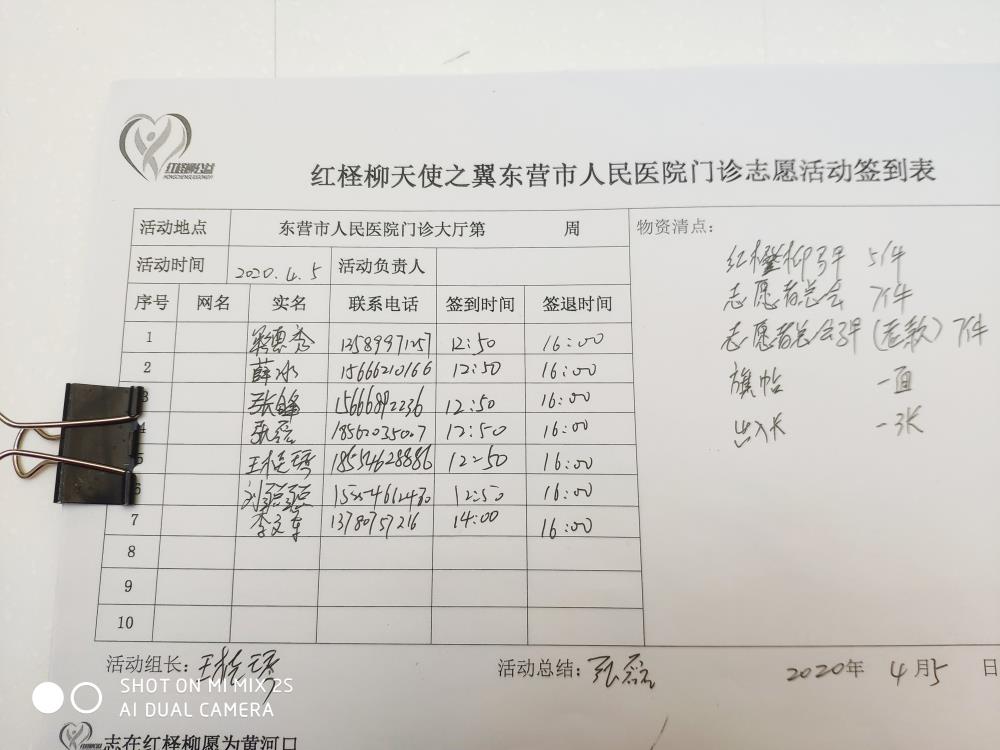 红柽柳公益
HONGCHENGLIUGONGYI
红柽柳天使之翼东营市人民医院门诊志愿活动签到表
活动地点 东营市人民医院门诊大厅第 周
活动时间 2020.4.5 活动负责人
序号 网名 实名 联系电话 签到时间 签退时间
1 秀 13589971257 12:50 16:00
2 薛冰 15666210166 12:50 16:00
3 张峰 15666892236 12:50 16:00
4 张磊 12:50 16:00
5 王桂琴 18554628886 12:50 16:00
6 刘 15554612430 12:50 16:00
7 李文东 13780757216 14:00 16:00
8
9
10
物资清点:
红柽柳马甲 5件
志愿者总会 7件
志愿者总会马甲(老款) 7件
旗帜 一面
一张
活动组长: 王桂琴 活动总结: 张磊 2020年 4月5 日
SHOT ON MI MIX 2S
AI DUAL CAMERA
志在红柽柳愿为黄河口